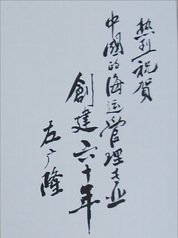 热烈祝賀
中國的海运管理专业
創建六十年
左广隆